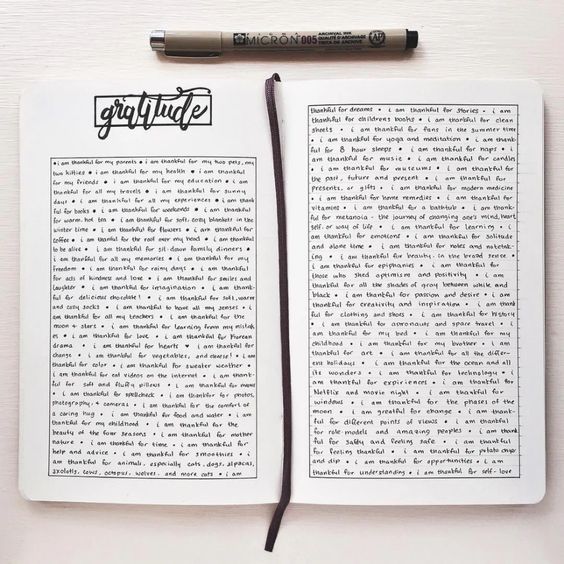 SAKURA
MICRON 005
ARCHIVAL INK
gratitude
• i am thankful for my parents • i am thankful for my two pets, my
two kitties • i am thankful for my health • i am thankful
for my friends • i am thankful for my education • i am
thankful for all my travels • i am thankful for sunny
days • i am thankful for all my experiences • i am thank
ful for books • i am thankful for weekends • i am thankful
for warm, hot tea • i am thankful for soft, cozy blanket in the
winter time • i am thankful for flowers • i am thankful for
coffee • i am thankful for the roof over my head • i am thankful
to be alive • i am thankful for sit down family dinners •
i am thankful for all my memories • i am thankful for my
freedom • i am thankful for rainy days • i am thankful
for acts of kindness and love • i am thankful for smiles and
laughter • i am thankful for imagination • i am thank-
ful for delicious chocolate! • i am thankful for soft, warm
and cozy socks • i am thankful to have all my senses • i
am thankful for all my teachers • i am thankful for the
moon + stars • i am thankful for learning from my mistak
es • i am thankful for love • i am thankful for Korean
drama • i am thankful for hearts ♥ • i am thankful for
change • i am thankful for vegetables, and cheese! • i am
thankful for color • i am thankful for sweater weather •
i am thankful for cat videos on the internet • i am thank-
ful for soft and fluffy pillows • i am thankful for
• i am thankful for spellcheck • i am thankful for photos,
photography, + cameras • i am thankful for the comfort of
a caring hug • i am thankful for food and water • i am
thankful for my childhood • i am thankful for the
beauty of the four seasons • i am thankful for mother
nature • i am thankful for time • i am thankful for
help and advice • i am thankful for smoothies • i
am thankful for animals, especially cats, dogs, alpacas,
axolotls, cows, octopus, wolves, and more cats • i am
thankful for dreams • i am thankful for stories • i am
thankful for childrens books • i am thankful for clean
sheets • i am thankful for fans in the summer time
• i am thankful for yoga and meditation • i am thank
ful for 8 hour sleeps • i am thankful for naps • i
am thankful for music • i am thankful for candles
• i am thankful for museums • i am thankful for
the past, future and present • i am thankful for
presents, or gifts • i am thankful for modern medicine
• i am thankful for home remedies • i am thankful for
vitamins • i am thankful for a bathtub • i am thank-
ful for metanoia - the journey of changing one's mind, heart,
self, or way of life • i am thankful for learning • i
am thankful for emotions • i am thankful for solitude
and alone time • i am thankful for notes and notetak-
ing • i am thankful for beauty, in the broad sense •
i am thankful for epiphanies • i am thankful for
those who shed optimism and positivity • i am
thankful for all the shades of gray between white and
black • i am thankful for passion and desire • i am
thankful for creativity and inspiration • i am thankful
for clothing and shoes • i am thankful for history
• i am thankful for astronauts and space travel • i
am thankful for my bed • i am thankful for my
childhood • i am thankful for my brother • i am
thankful for art • i am thankful for all the differ-
ent holidays • i am thankful for the ocean and all
its wonders • i am thankful for technology • i
am thankful for experiences • i am thankful for
Netflix and movie night • i am thankful for
windows • i am thankful for the phases of the
moon • i am grateful for change • i am thank-
ful for different points of views • i am thankful
for role models and amazing peoples • i am thank
ful for safety and feeling safe • i am thankful
for feeling thankful • i am thankful for potato chips
and dip • i am thankful for opportunities • i am
thankful for understanding • i am thankful for self-love